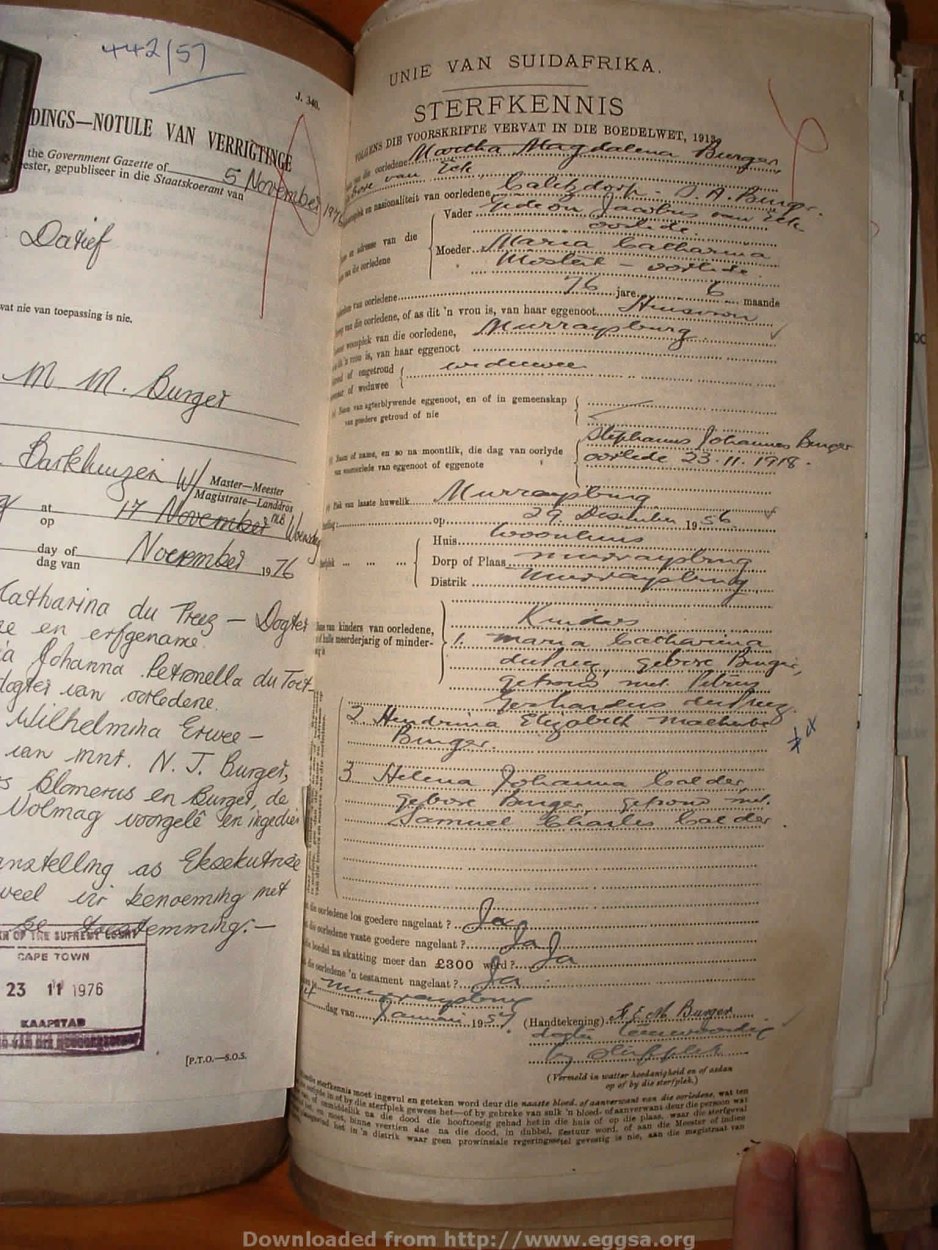 442/57
J. 340.
DINGS—NOTULE VAN VERRIGTINGE
the Government Gazette of
ester, gepubliseer in die Staatskoerant van
5 November 1976
Datief
wat nie van toepassing is nie.
M. M. Burger
Barkhuizen W/
Master—Meester
Magistrate—Landdros
at
op
17 November
Woensdag
day of
dag van
November 1976
Catharina du Preez — Dogter
en erfgename
Johanna Petronella du Toit
dogter van oorledene.
Wilhelmina Erwee —
van mnr. N. J. Burger,
Blomerus en Burger, de
Volmag voorgelê en ingedien
anstelling as Eksekutrise
weel vir benoeming met
temming.—
OF THE SUPREME COURT
CAPE TOWN
23 11 1976
KAAPSTAD
[P.T.O.—S.O.S.
UNIE VAN SUIDAFRIKA.
STERFKENNIS
VOLGENS DIE VOORSKRIFTE VERVAT IN DIE BOEDELWET, 1913.
van die oorledene Martha Magdalena Burger
gebore van Eck
en nasionaliteit van oorledene Calitzdorp - S.A. Burger.
Vader Gideon Jacobus van Eck
oorlede.
en adresse van die
van die oorledene
Moeder Maria Catharina
Mostert - oorlede.
van oorledene 76 jare 6 maande
van die oorledene, of as dit 'n vrou is, van haar eggenoot Huisvrou
woonplek van die oorledene, Murraysburg
'n vrou is, van haar eggenoot
of ongetroud
of weduwee
weduwee
Naam van agterblywende eggenoot, en of in gemeenskap
van goedere getroud of nie
Naam of name, en so na moontlik, die dag van oorlyde
van eggenoot of eggenote
Stephanus Johannes Burger
oorlede 23.11.1918.
Plek van laaste huwelik Murraysburg
op 29 Desember 1956
Huis Woonhuis
Dorp of Plaas Murraysburg
Distrik Murraysburg
Name van kinders van oorledene,
of hulle meerderjarig of minder-
Kinders
1. Maria Catharina
du Preez, gebore Burger,
getroud met Petrus
Gerhardus du Preez.
2 Hendrina Elizabeth Malherbe
Burger.
3 Helena Johanna Calder,
gebore Burger, getroud met
Samuel Charles Calder.
die oorledene los goedere nagelaat ? Ja
die oorledene vaste goedere nagelaat ? Ja
die boedel na skatting meer dan £300 werd ? Ja
die oorledene 'n testament nagelaat ? Ja
Murraysburg
dag van Januari 1957
(Handtekening) H. E. M. Burger
dogter teenwoordig
by sterfplek
(Vermeld in watter hoedanigheid en of asdan
op of by die sterfplek.)
sterfkennis moet ingevul en geteken word deur die naaste bloed- of aanverwant van die oorledene, wat ten
in of by die sterfplek gewees het—of by gebreke van sulk 'n bloed- of aanverwant deur die persoon wat
onmiddellik na die dood die hooftoesig gehad het in die huis of op die plaas, waar die sterfgeval
en moet, binne veertien dae na die dood, in dubbel, gestuur word, of aan die Meester of indien
het in 'n distrik waar geen prowinsiale regeringsetel gevestig is nie, aan die magistraat van
Downloaded from http://www.eggsa.org